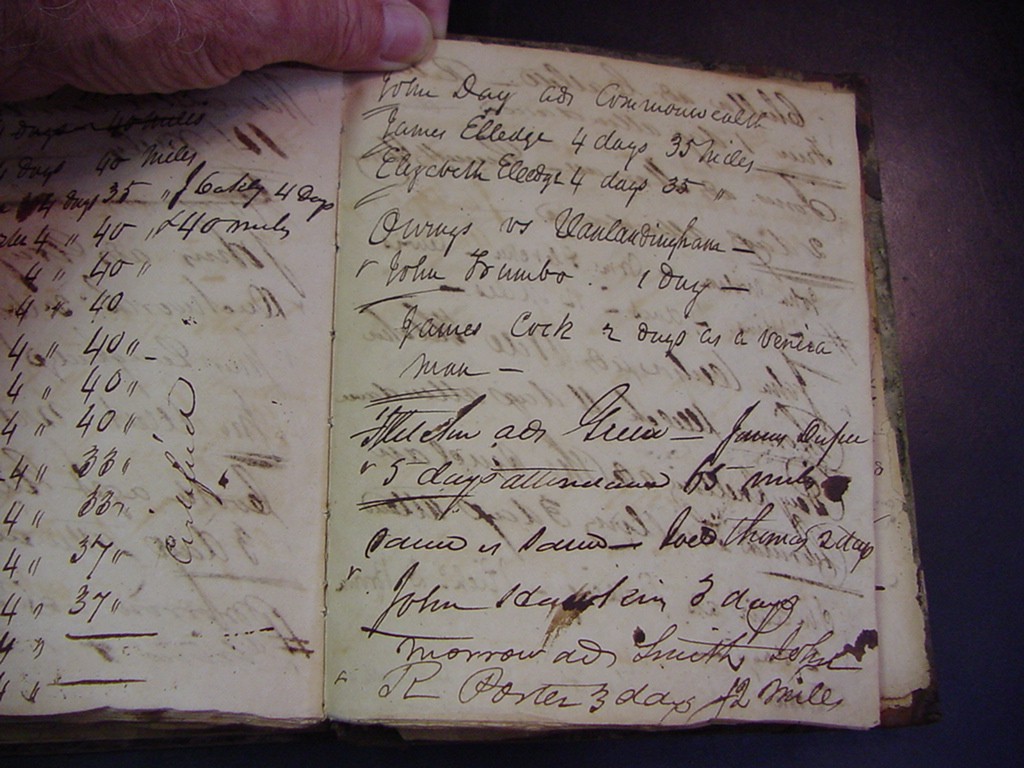 4 days 40 miles
4 days 40 miles
4 days 35 " Oakley 4 Days
4 " 40 " & 40 miles
4 " 40 "
4 " 40
4 " 40 "
4 " 40 "
4 " 40 "
4 " 33 "
4 " 33 "
4 " 37 "
4 " 37 "
4 "
4 "
Certified
John Day ads Commonwealth
James Elledge 4 days 35 miles
Elizabeth Elledge 4 days 35 "
Owings vs Vanlandingham
John Trumbo 1 Day
James Cock 2 days as a venira
man
Fletcher ads Green
5 days attendance 65 miles
Same vs Same Thomas 2 days
John Hawkins 3 days
Morrow ads Smith John
R Porter 3 days 12 miles